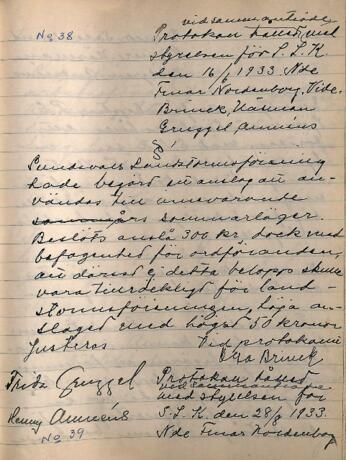 No 38
vid sammanträde
Protokoll hållet med
styrelsen för S. L. K.
den 16/6 1933. Nde
Einar Nordenborg, Wide,
Brinck, Näsman
Gruggel, Amnéus
§ 1
Sundsvalls Landstormsförening
hade begärt ett anslag att an-
vändas till innevarande
sommarläger.
Beslöts anslå 300 kr. dock med
befogenhet för ordföranden,
att därest ej detta belopp skulle
vara tillräckligt för land-
stormsföreningen, höja an-
slaget med högst 50 kronor
Justeras Vid protokollet
Brinck
Fritz Gruggel
Henny Amnéus
Protokoll hållet
med styrelsen för
S. L. K. den 28/8 1933.
No 39
Nde Einar Nordenborg